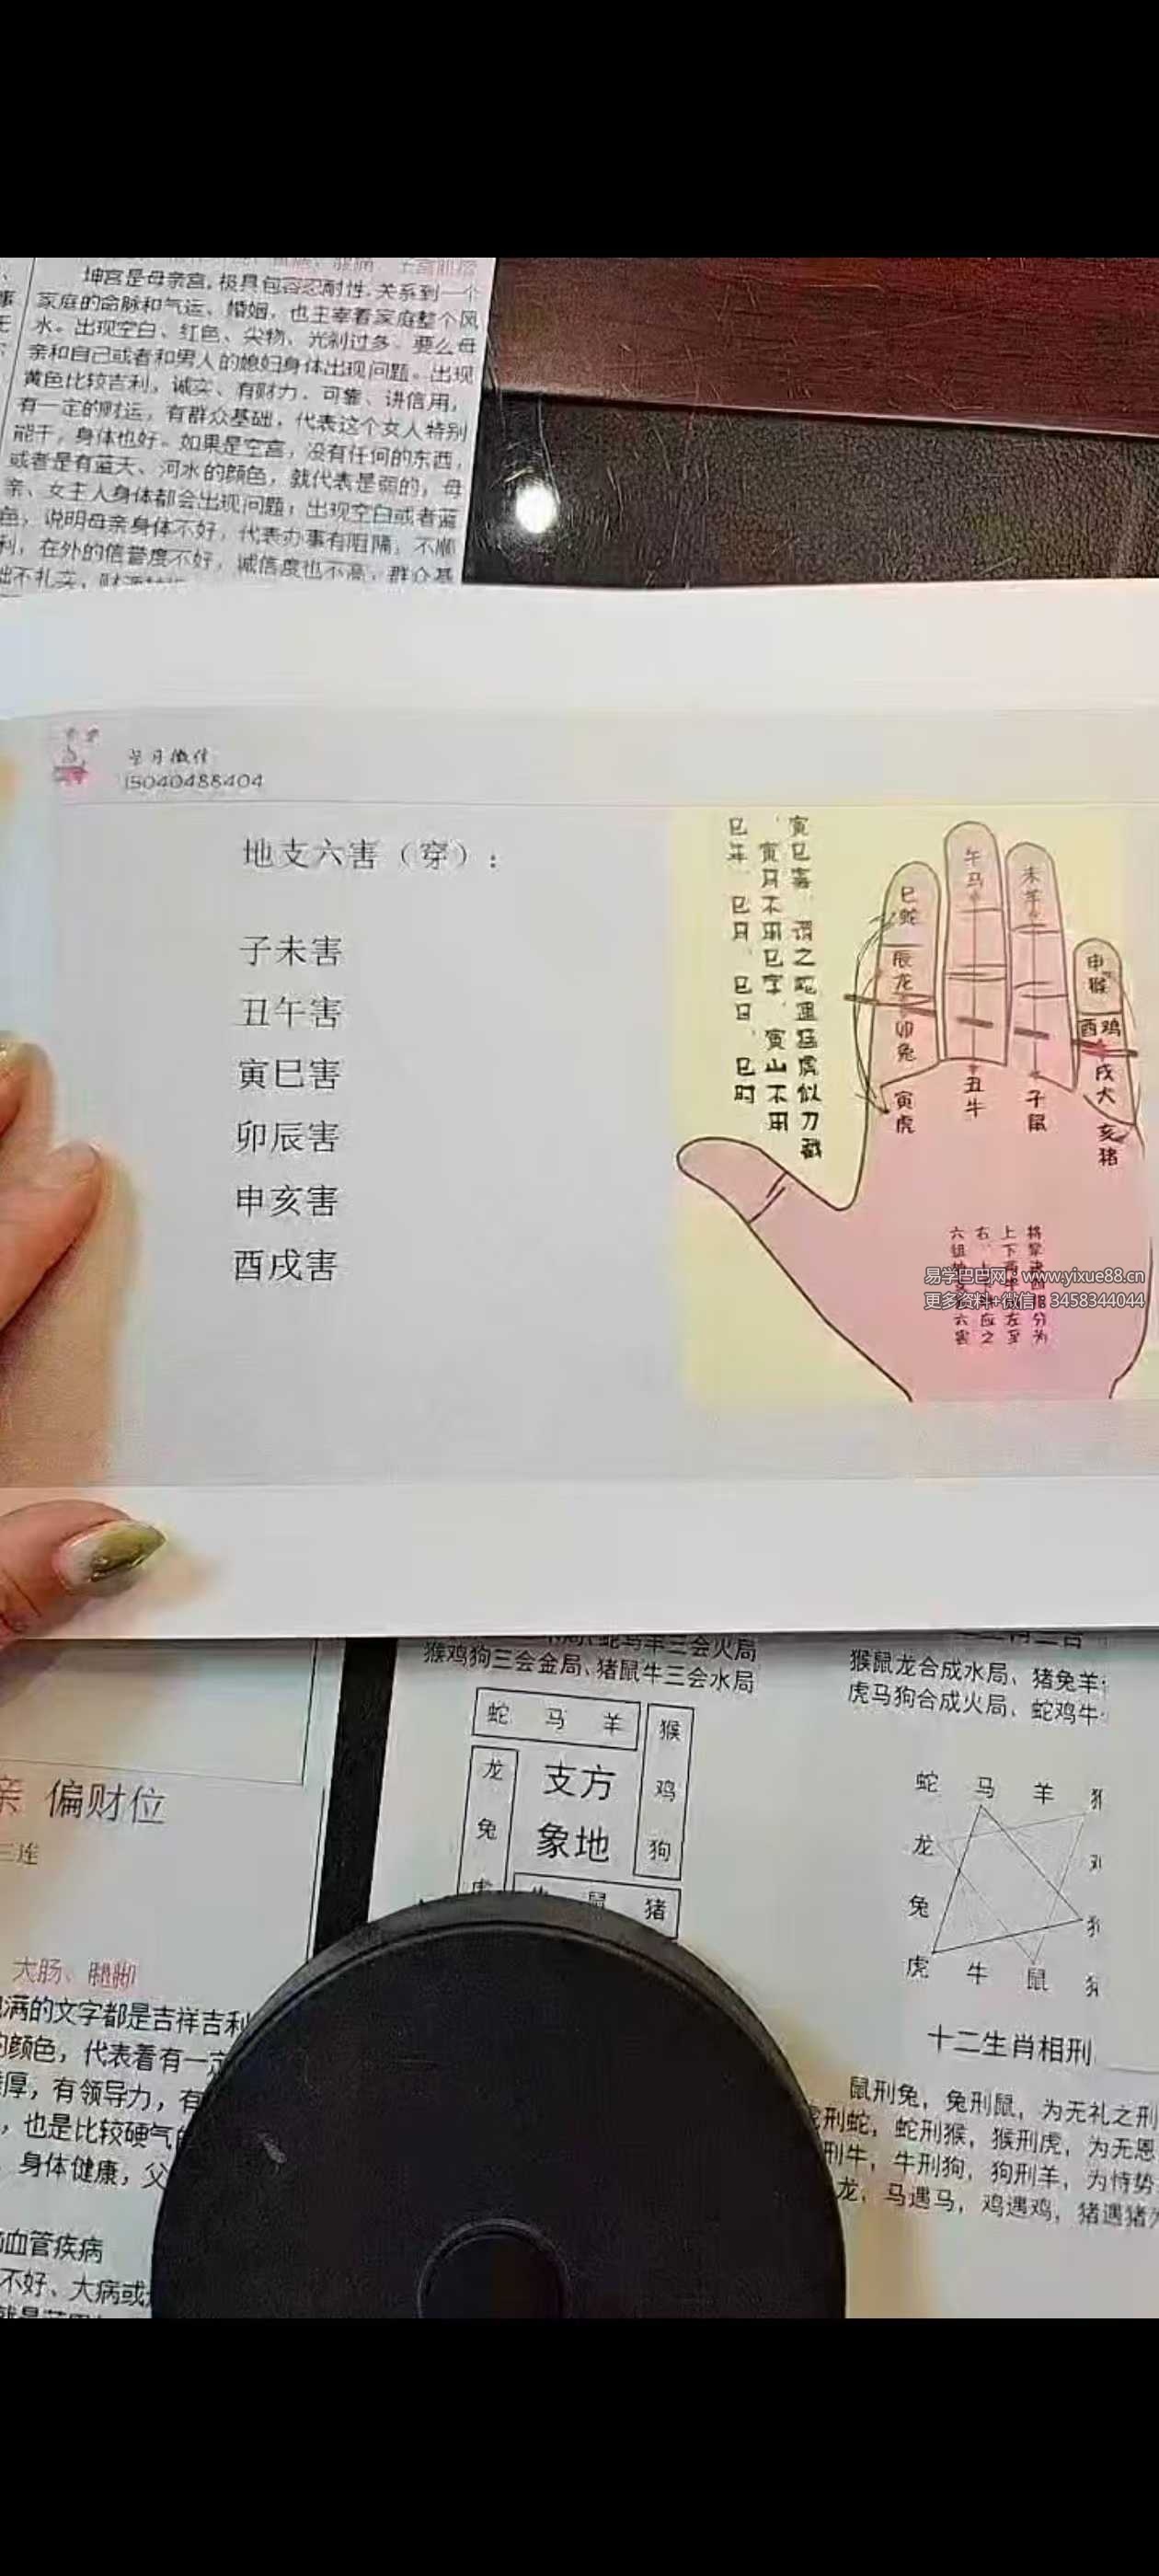 坤宫是母亲宫，极具包容忍耐性，关系到一个
家庭的命脉和气运、婚姻，也主宰着家庭整个风
水。出现空白、红色、尖物、光刹过多，要么母
亲和自己或者和男人的媳妇身体出现问题。出现
黄色比较吉利，诚实、有财力、可靠、讲信用，
有一定的财运，有群众基础，代表这个女人特别
能干，身体也好。如果是空宫，没有任何的东西，
或者是有蓝天、河水的颜色，就代表是弱的，母
亲、女主人身体都会出现问题；出现空白或者蓝
色，说明母亲身体不好，代表办事有阻隔，不顺
利，在外的信誉度不好，诚信度也不高，群众基
础不扎实，
15040488404
地支六害（穿）：
子未害
丑午害
寅巳害
卯辰害
申亥害
酉戌害
寅巳害，谓之蛇遇猛虎似刀戳
，寅月不用巳字，寅山不用
巳年、巳月、巳日、巳时
巳蛇
辰龙
卯兔
寅虎
午马
丑牛
未羊
子鼠
申猴
酉鸡
戌犬
亥猪
易学巴巴网：www.yixue88.cn
更多资料+微信：3458344044
蛇马羊三会火局
猴鸡狗三会金局、猪鼠牛三会水局
蛇 马 羊
猴
鸡
狗
龙
兔
虎
支方
象地
牛 鼠 猪
猴鼠龙合成水局、猪兔羊
虎马狗合成火局、蛇鸡牛
蛇 马 羊
龙
兔
虎 牛 鼠
十二生肖相刑
鼠刑兔，兔刑鼠，为无礼之刑
虎刑蛇，蛇刑猴，猴刑虎，为无恩
刑牛，牛刑狗，狗刑羊，为恃势
龙，马遇马，鸡遇鸡，猪遇猪
亲 偏财位
三连
大肠、腿脚
满的文字都是吉祥吉利
的颜色，代表着有一定
厚，有领导力，有
，也是比较硬气
身体健康，父
血管疾病
不好、大病或